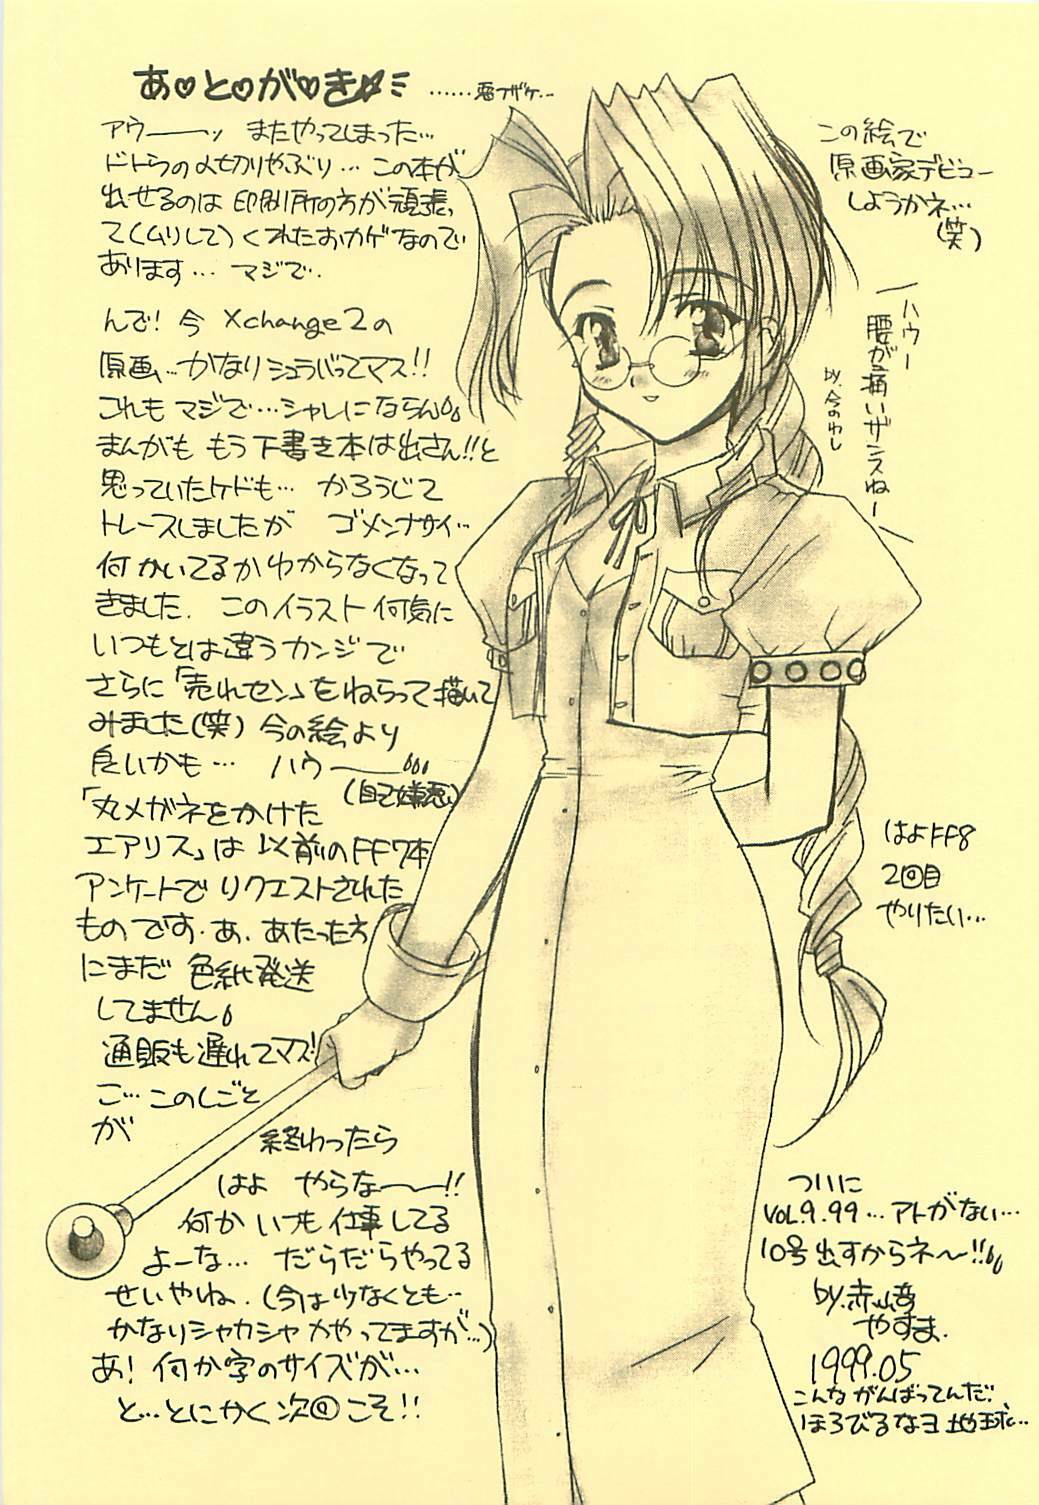 あ♡と♡が♡き☆ ……悪フザケ…
アウーーッ またやってしまった…
ドトウの〆切りやぶり… この本が
出せるのは 印刷所の方が頑張っ
て(ムリして)くれたおカゲなので
あります… マジで.
んで! 今 Xchange2の
原画…かなりシュラバってマス!!
これも マジで…シャレにならん
まんがも もう下書き本は出さん!!と
思っていたケドも… かろうじて
トレースしましたが ゴメンナサイ…
何かいてるかわからなくなって
きました. このイラスト何気に
いつもとは違うカンジで
さらに「売れセン」をねらって描いて
みました(笑) 今の絵より
良いかも… ハウーー
(自己嫌悪)
「丸メガネをかけた
エアリス」は 以前のFF7本
アンケートでリクエストされた
ものです. あ. あたった方
にまだ 色紙発送
してません
通販も遅れてマス!
ご… このしごと
が
終わったら
はよ やらなーー!!
何か いつも仕事してる
よーな… だらだらやってる
せいやね. (今は少なくとも…
かなりシャカシャカやってますが…)
あ! 何か字のサイズが…
と…とにかく次回こそ!!
この絵で
原画家デビュー
しようかネ…
(笑)
ハウー
腰が痛いザンスねー
by.今のわし
はよFF8
2回目
やりたい…
ついに
VOL.9.99…アトがない…
10号出すからネ〜!!
by.赤﨑
やすま.
1999.05
こんながんばってんだ!
ほろびるなヨ地球…